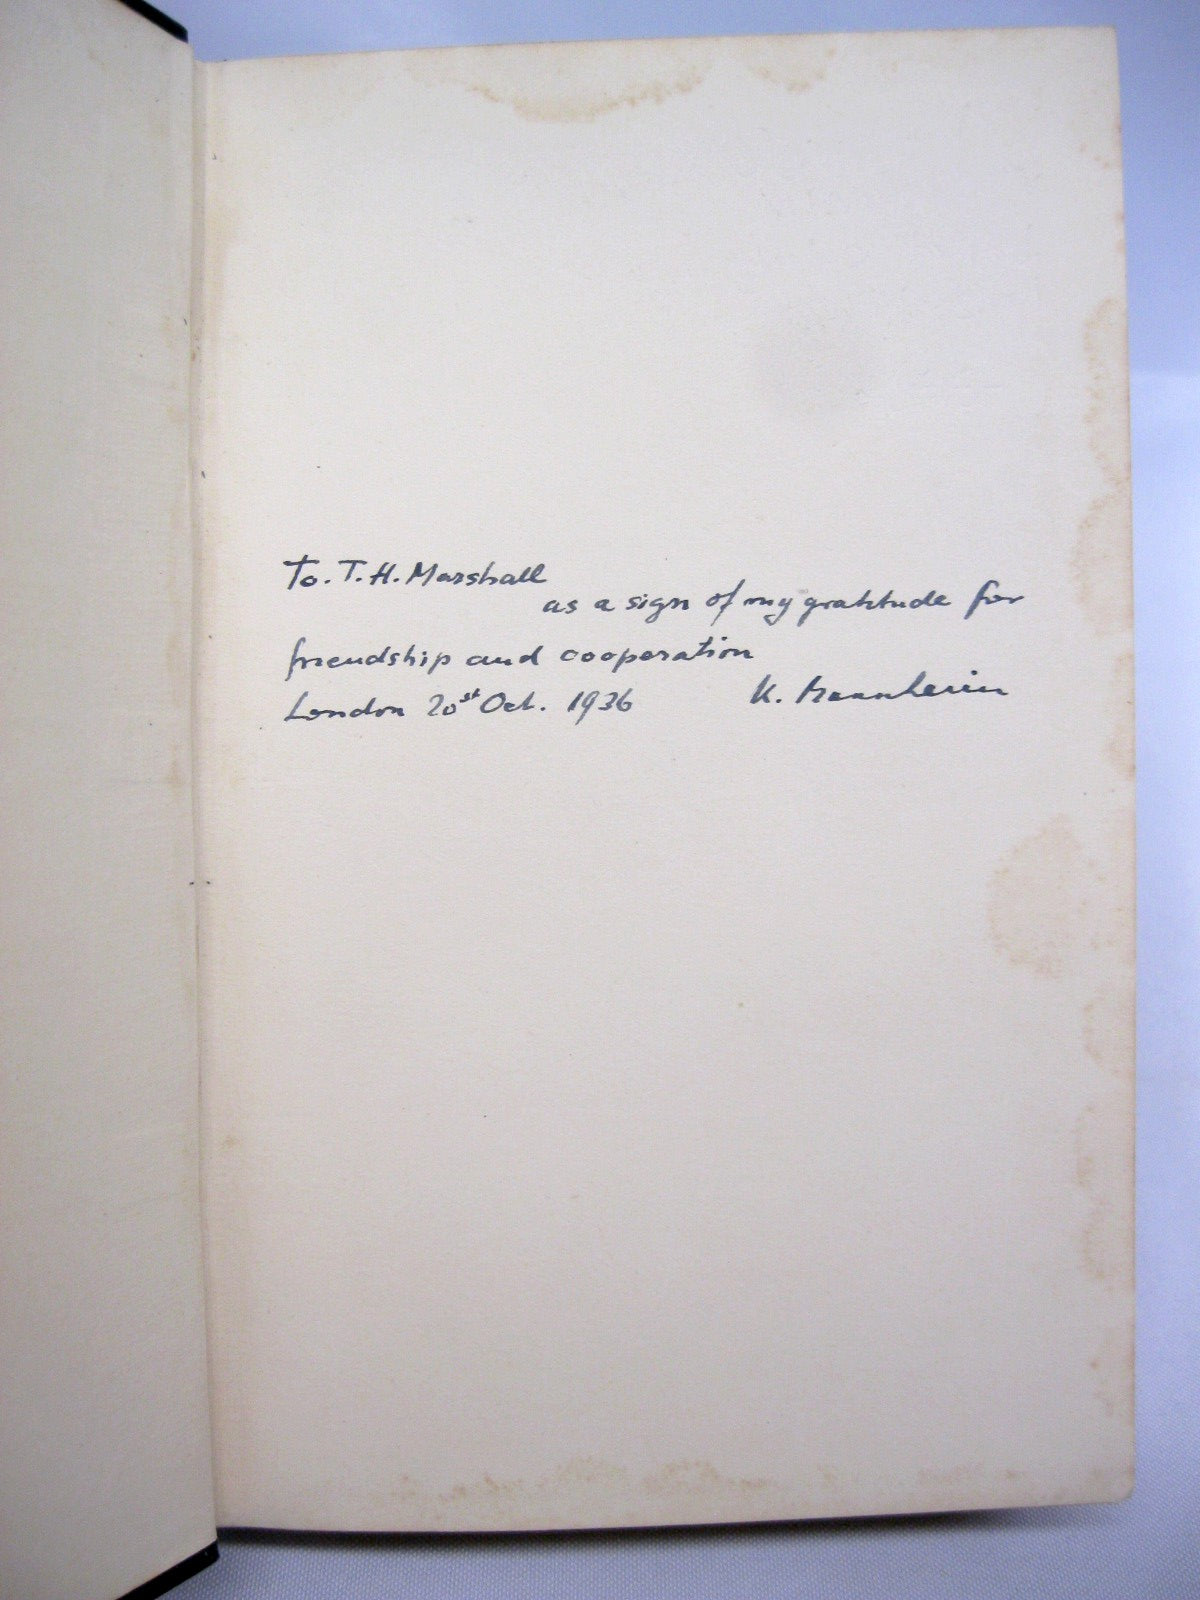 To. T. H. Marshall
as a sign of my gratitude for
friendship and cooperation
London 20st Oct. 1936 K. Mannheim